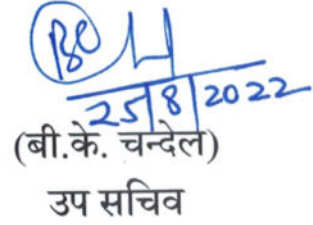 25/8/2022
(बी.के. चन्देल)
उप सचिव